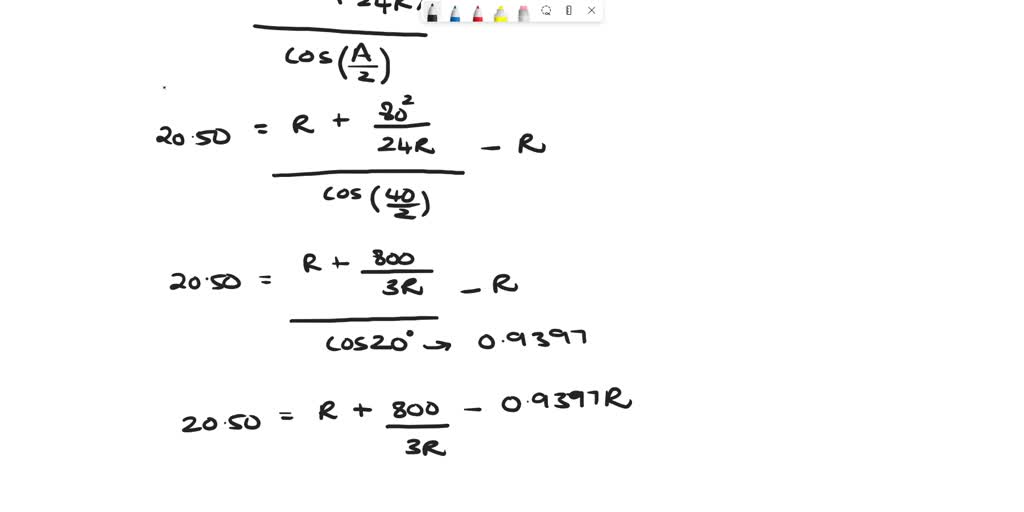 24R
cos(A/2)
20.50 = R + 80²/24R - R
cos(40/2)
20.50 = R + 800/3R - R
cos20° → 0.9397
20.50 = R + 800/3R - 0.9397R